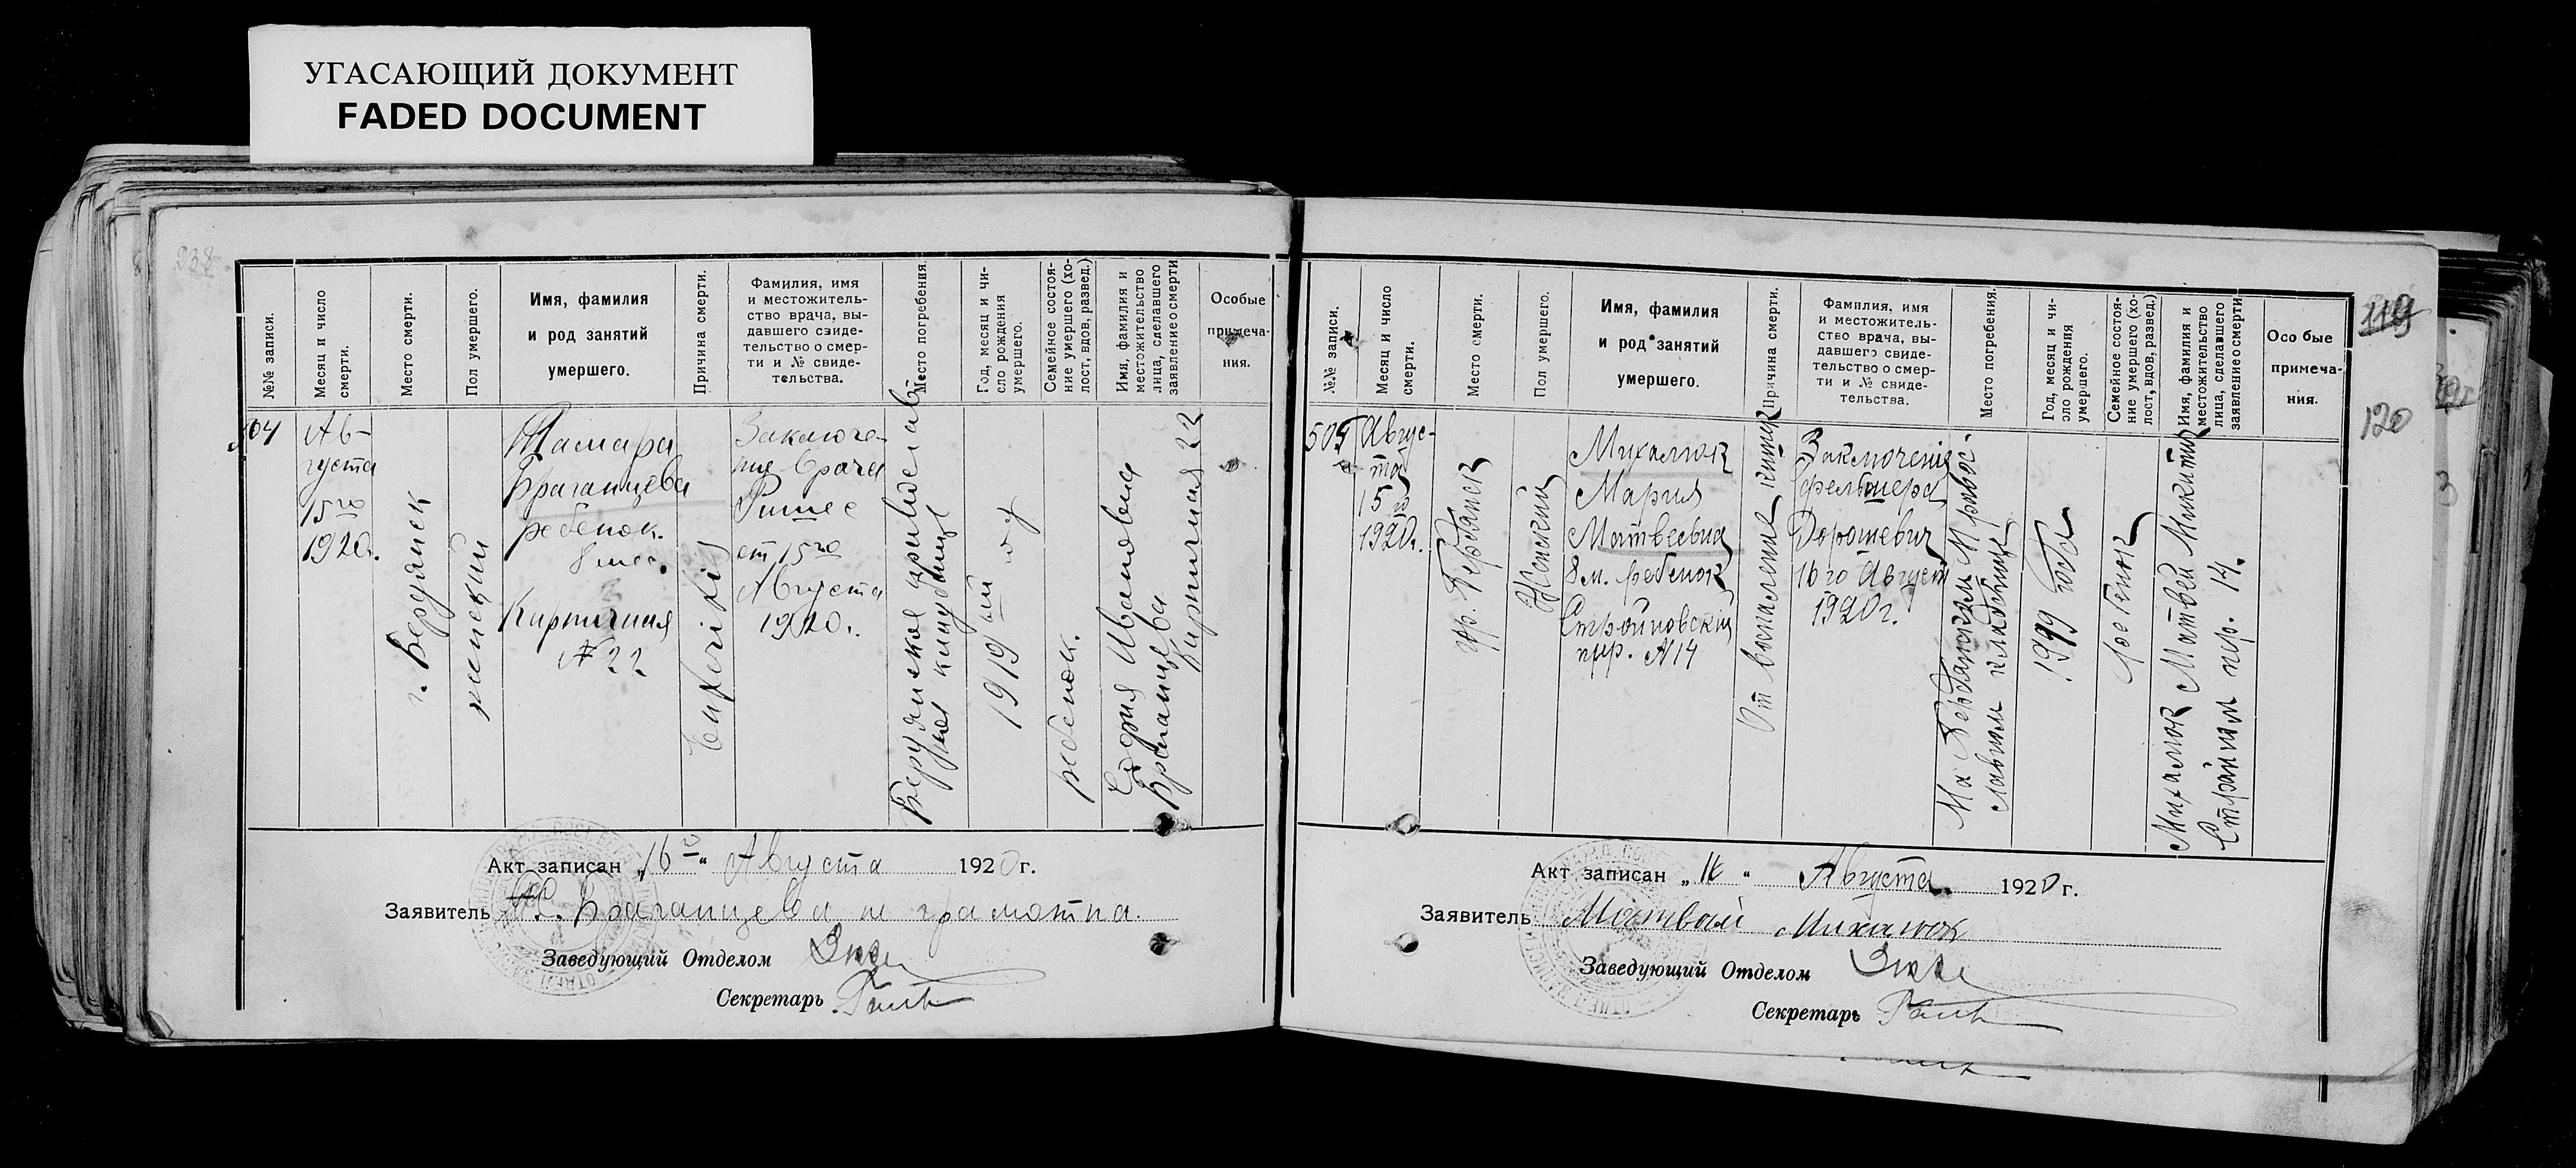 УГАСАЮЩИЙ ДОКУМЕНТ
FADED DOCUMENT
238
№№ записи.
Месяц и число
смерти.
Место смерти.
Пол умершего.
Имя, фамилия
и род занятий
умершего.
Причина смерти.
Фамилия, имя
и местожитель-
ство врача, вы-
давшего свиде-
тельство о смер-
ти и № свиде-
тельства.
Место погребения.
Год, месяц и чи-
сло рождения
умершего.
Семейное состоя-
ние умершего (хо-
лост, вдов, развед.)
Имя, фамилия и
местожительство
лица, сделавшего
заявление о смерти
Особые
примеча-
ния.
504
Ав-
густа
15го
1920г.
г. Бердянск
женский
Тамара
Браганцева
ребенок.
8 мес.
Кирпичная
№ 22
Заключе-
ние врача
от 15го
Августа
1920г.
Бердянское православ-
ное кладбище
1919
ребенок.
Ивановна
Браганцева
Кирпичная 22
Акт записан „16го" Августа 1920г.
Заявитель Браганцева не грамотна.
Заведующий Отделом
Секретарь
№№ записи.
Месяц и число
смерти.
Место смерти.
Пол умершего.
Имя, фамилия
и род занятий
умершего.
Причина смерти.
Фамилия, имя
и местожитель-
ство врача, вы-
давшего свиде-
тельство о смер-
ти и № свиде-
тельства.
Место погребения.
Год, месяц и чи-
сло рождения
умершего.
Семейное состоя-
ние умершего (хо-
лост, вдов, развед.)
Имя, фамилия и
местожительство
лица, сделавшего
заявление о смерти.
Особые
примеча-
ния.
119
120
505
Авгус-
та
15го
1920г.
гор. Бердянск
Женский
Михалюк
Мария
Матвеевна
8 м. ребенок
пер. №14
От воспаления
Заключение
фельдшера
Дорошевич
16го Август
1920г.
На Бердянском Право-
славном кладбище
года
ребенок
Михалюк Матвей
пер. 14.
Акт записан „16" Августа 1920г.
Заявитель Матвей Михалюк
Заведующий Отделом
Секретарь